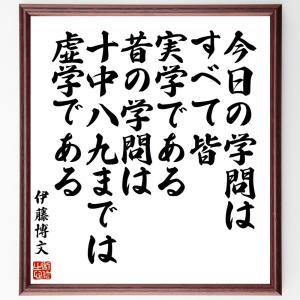 今日の学問は
すべて皆
実学である
昔の学問は
十中八九までは
虚学である
伊藤博文